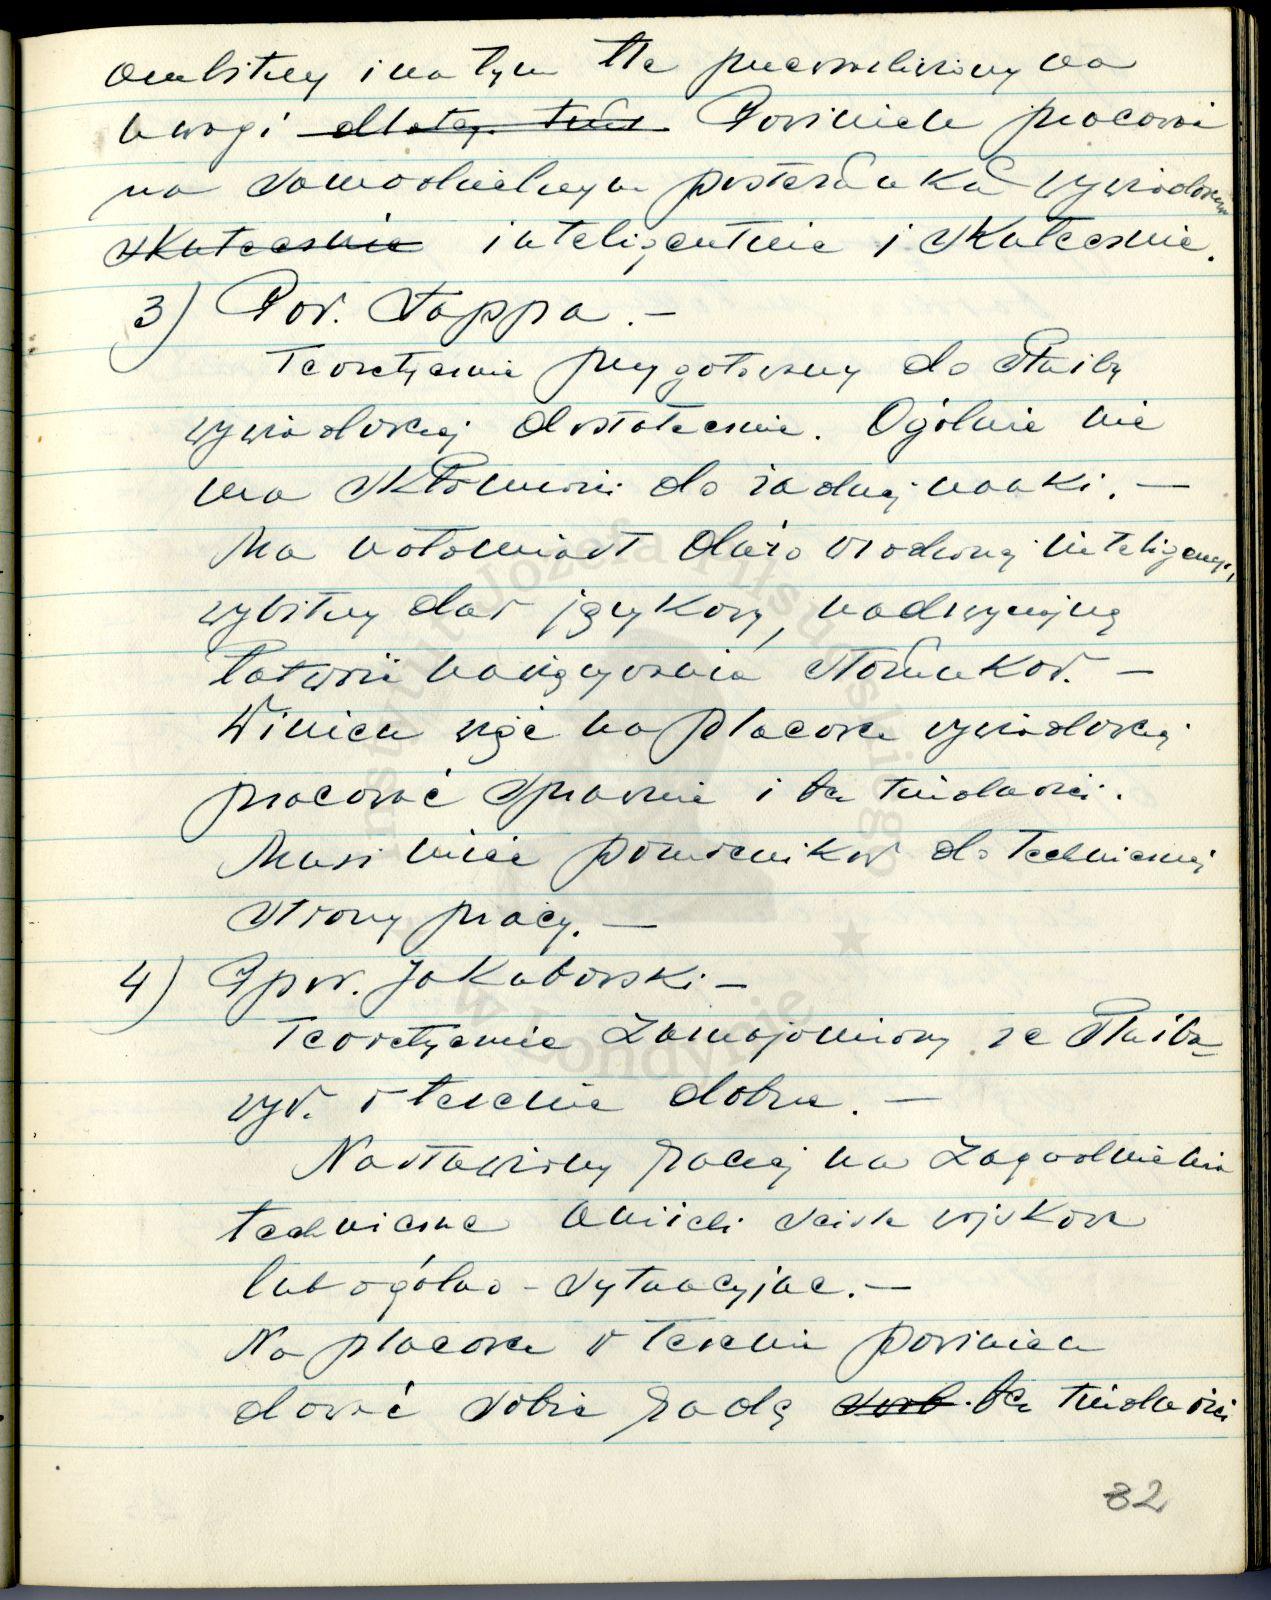 ambitny i na tym tle przewrażliwiony na
uwagi Powinien pracować
na samodzielnym posterunku wywiadowczym
skutecznie inteligentnie i skutecznie.
3) Por. Sappa. —
Teoretycznie przygotowany do służby
wywiadowczej dostatecznie. Ogólnie nie
ma skłonności do żadnej nauki. —
Ma natomiast dużo wrodzonej inteligencji,
wybitny dar językowy, nadzwyczajną
łatwość nawiązywania stosunków. —
Winien więc na placówce wywiadowczej
pracować sprawnie i bez trudności.
Musi mieć pomocników do technicznej
strony pracy. —
4) Ppor. Jakubowski —
Teoretycznie zaznajomiony ze służbą
wyw. w terenie dobrze. —
Nastawiony raczej na zagadnienia
techniczne aniżeli ściśle wojskowe
lub ogólno - sytuacyjne. —
Na placówce w terenie powinien
dawać sobie radę bez trudności
82
Instytut Józefa Piłsudskiego
w Londynie